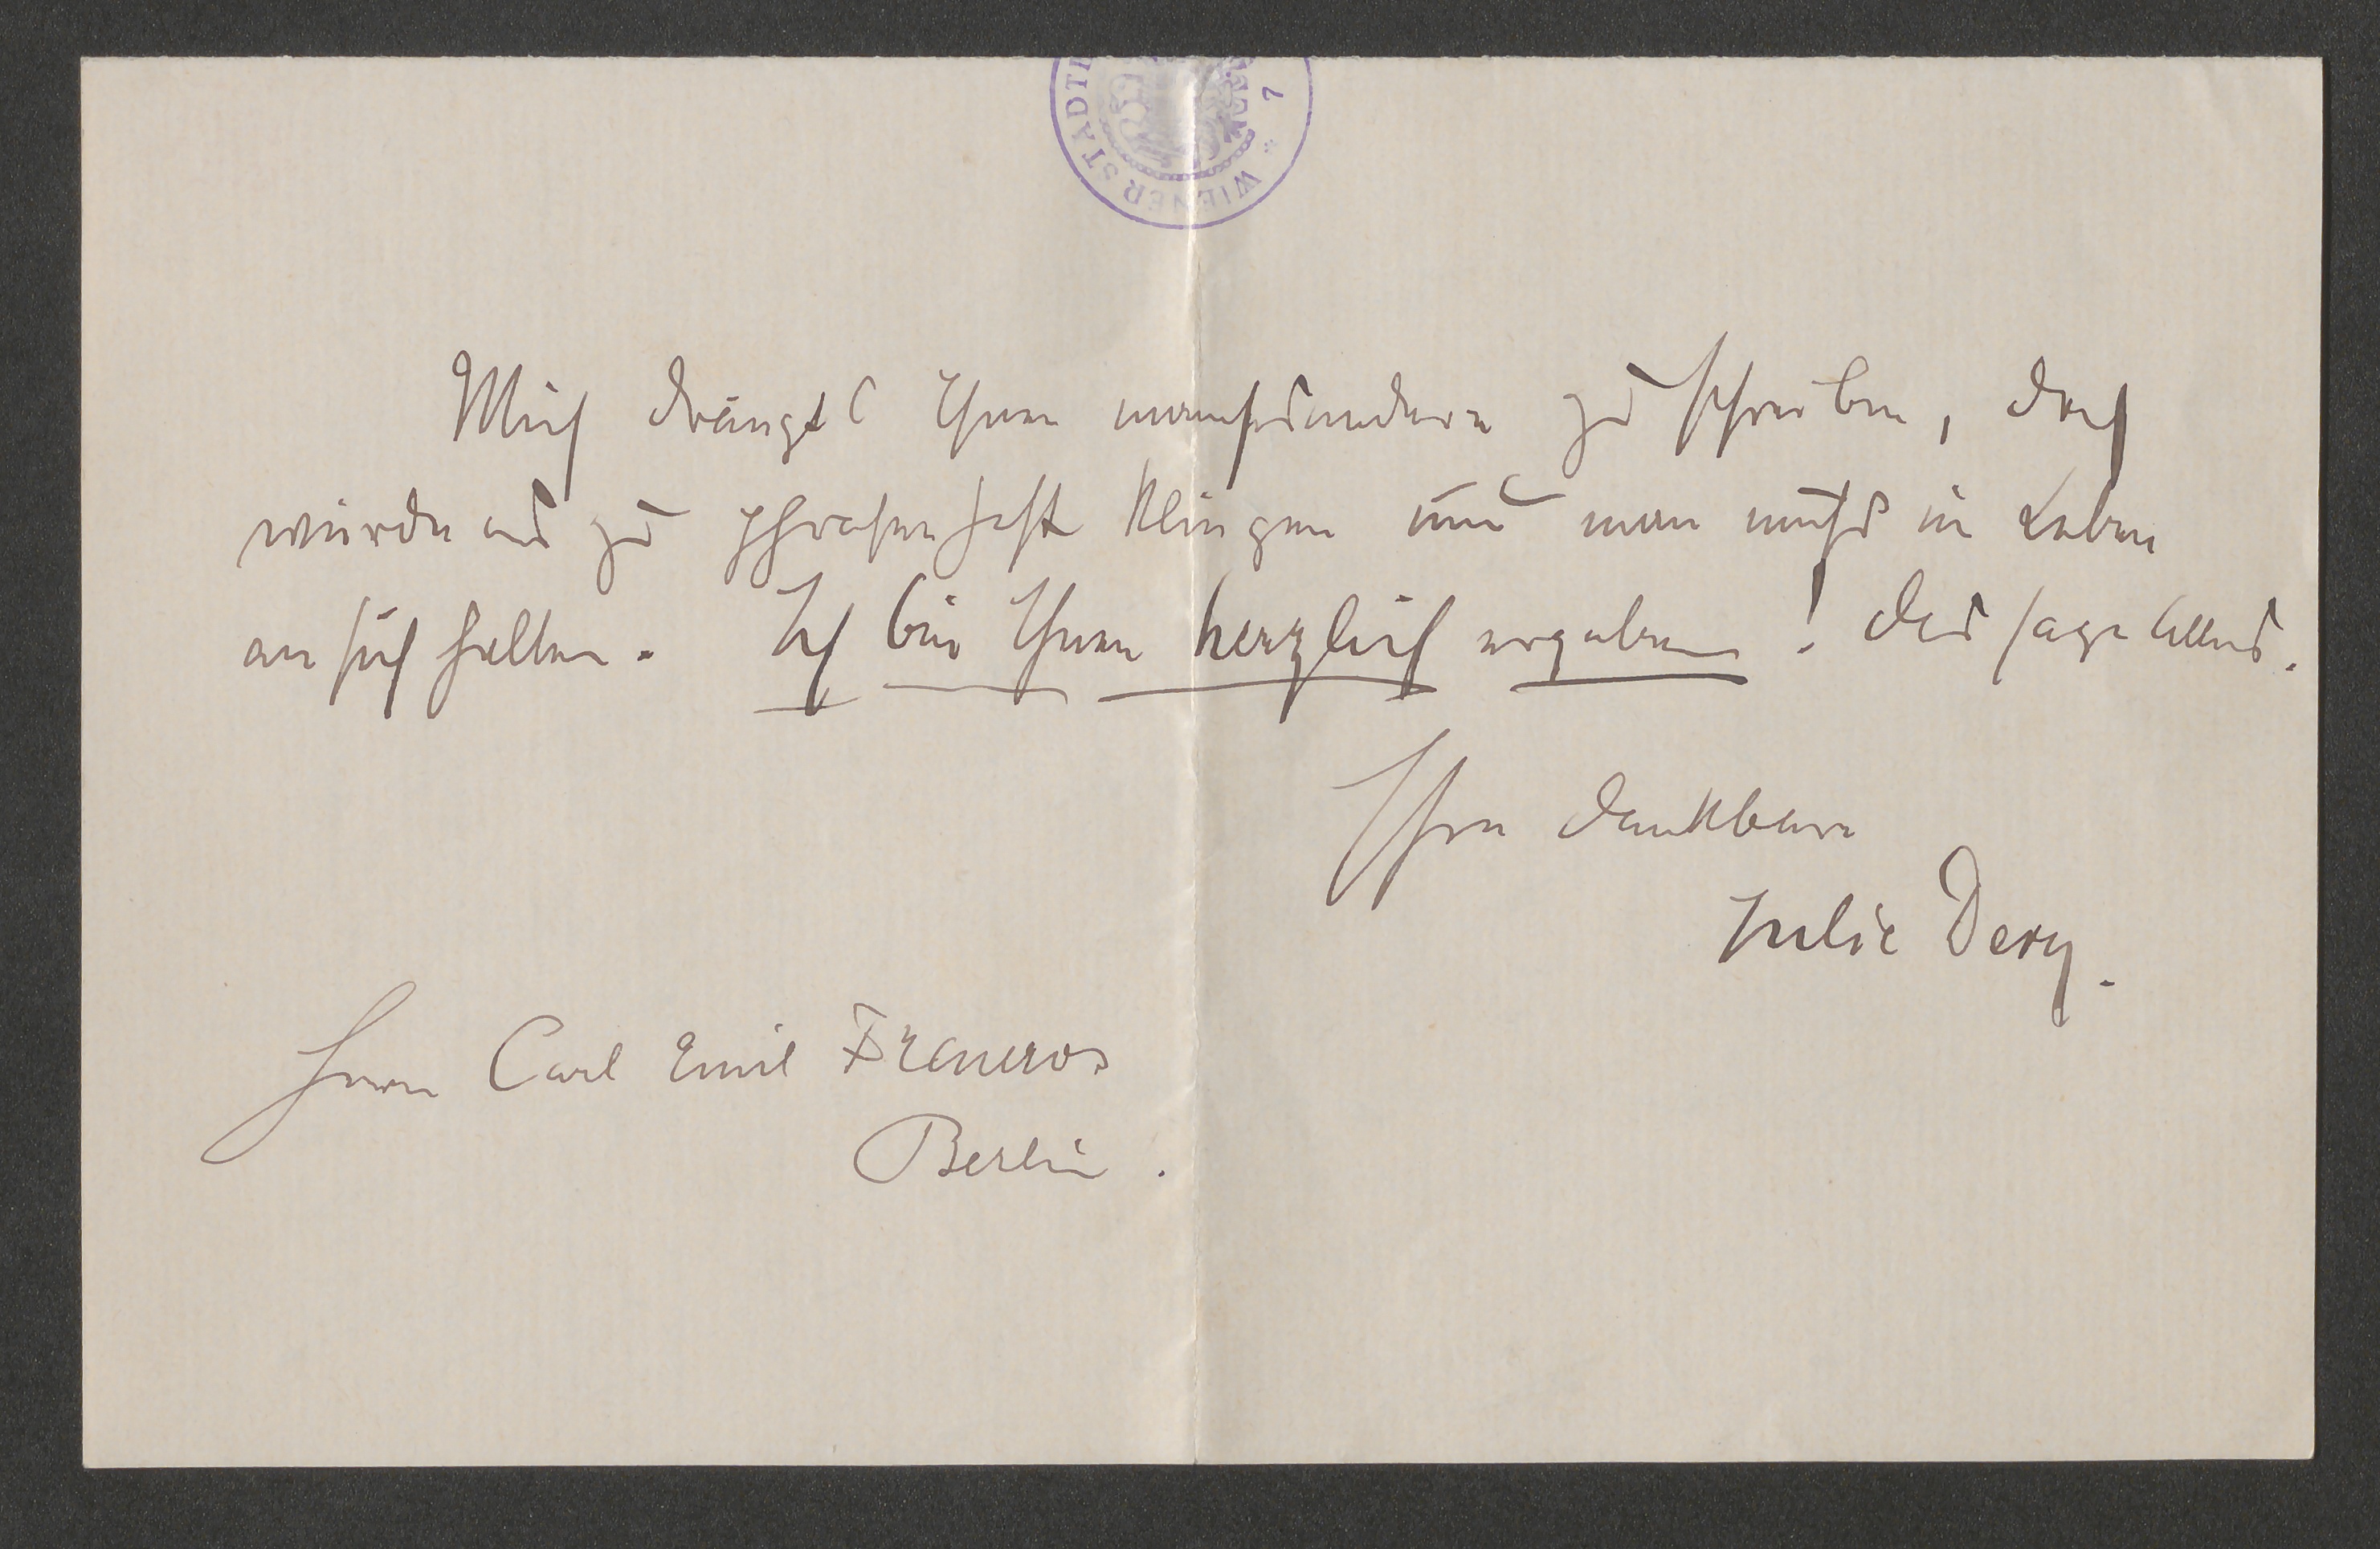 WIENER STADTI
7
Mich drängt's Ihnen manchesandere zu schreiben, doch
würde es zu phrasenhaft klingen und man muß im Leben
an sich halten. Ich bin Ihnen herzlich ergeben! Das sage Alles.
Ihre dankbare
Julie Dery.
Herrn Carl Emil Franzos
Berlin.